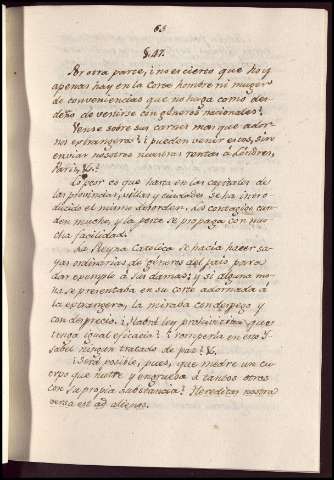 63
§. 47.
Por otra parte, ¿no es cierto que hoy
apenas hay en la Corte hombre ni muger
de conveniencias que no haga como des-
deño de vestirse con géneros nacionales?
Vense sobre sus carnes mas que ador-
nos extrangeros? i pueden venir estos, sin
enviar nosotros nuestras rentas á Londres,
París, &c.?
Lo peor es que hasta en las capitales de
las provincias, villas y ciudades se ha intro-
ducido el mismo desorden. Los contagios cun-
den mucho, y la peste se propaga con mu-
cha facilidad.
La Reyna Católica se hacía hacer sa-
yas ordinarias de géneros del país para
dar exemplo á sus damas; y si alguna mo-
na se presentaba en su corte adornada á
la extrangera, la miraba con despego y
con desprecio. ¿Habrá ley prohibitiva que
tenga igual eficacia? ¿rompería en esto Y-
sabel ningun tratado de paz? &.
¿Será posible, pues, que medre un cu-
erpo que nutre y engruesa á tantos otros
con su propia substancia? Hereditas nostra
versa est ad alienos.